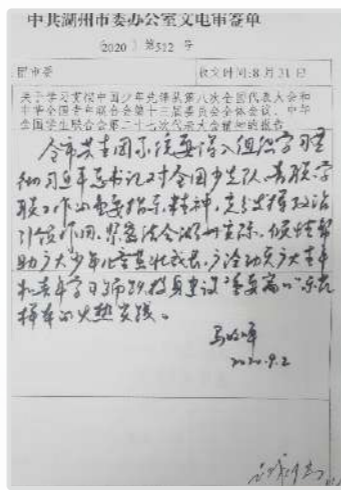 中共湖州市委办公室文电审签单
2020 第512 号
团市委
收文时间:8月31日
关于学习贯彻中国少年先锋队第八次全国代表大会和
中华全国青年联合会第十三届委员会全体会议、中华
全国学生联合会第二十七次代表大会精神的报告
全市共青团系统要深入组织学习贯
彻习近平总书记对全国少先队、青联学
联工作的重要指示精神,充分发挥政治
引领作用,紧密结合湖州实际,倾情帮
助广大少年儿童茁壮成长,广泛动员广大青年
和青年学习,投身建设"重要窗口"示范
样本的火热实践。
马晓晖
2020.9.2